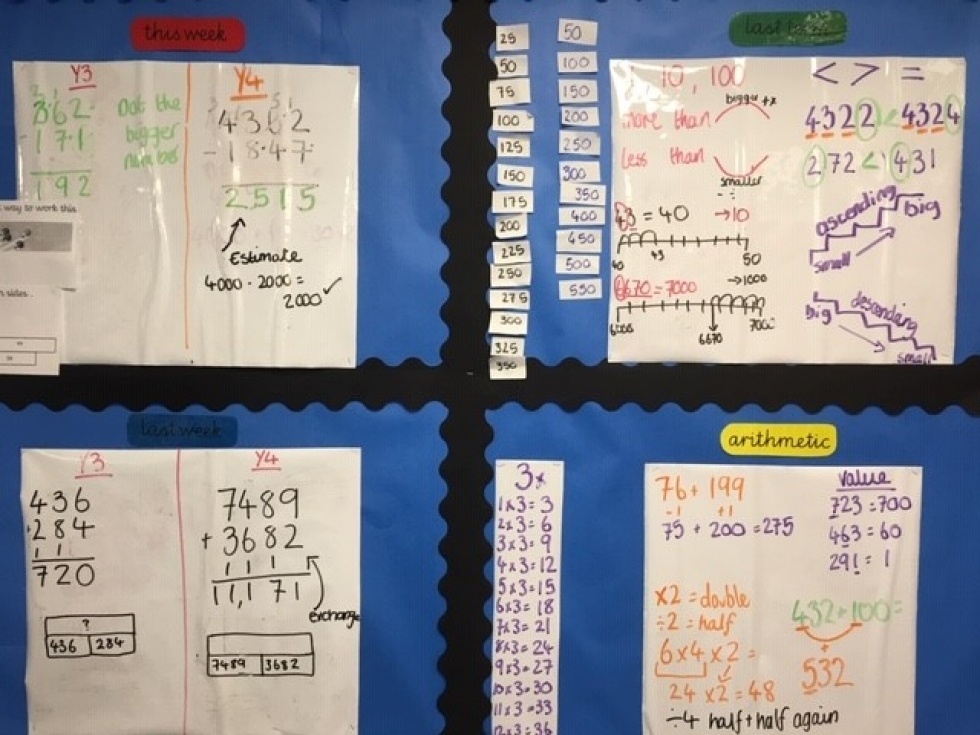 this week
Y3
362
-171
192
Dot the
bigger
number
Y4
4362
-1847
2515
Estimate
4000 - 2000 =
2000 ✓
way to work this
sides.
25
50
75
100
125
150
175
200
225
250
275
300
325
350
50
100
150
200
250
300
350
400
450
500
550
last
1, 10, 100
bigger + x
more than
less than
smaller
- ÷
43 = 40 →10
40 43 50
6670 = 7000 →1000
6000 6670 7000
< > =
4322 < 4324
272 < 431
ascending
big
small
big
descending
small
last week
Y3
436
+284
1 1
720
?
436 284
Y4
7489
+ 3682
1 1 1
11,171
exchange
7489 3682
3x
1x3=3
2x3=6
3x3=9
4x3=12
5x3=15
6x3=18
7x3=21
8x3=24
9x3=27
10x3=30
11x3=33
12x3=36
arithmetic
76 + 199
-1 +1
75 + 200 = 275
value
723 = 700
463 = 60
291 = 1
x2 = double
÷2 = half
6 x 4 x 2 =
24 x 2 = 48
÷4 half + half again
432 + 100 =
+
532